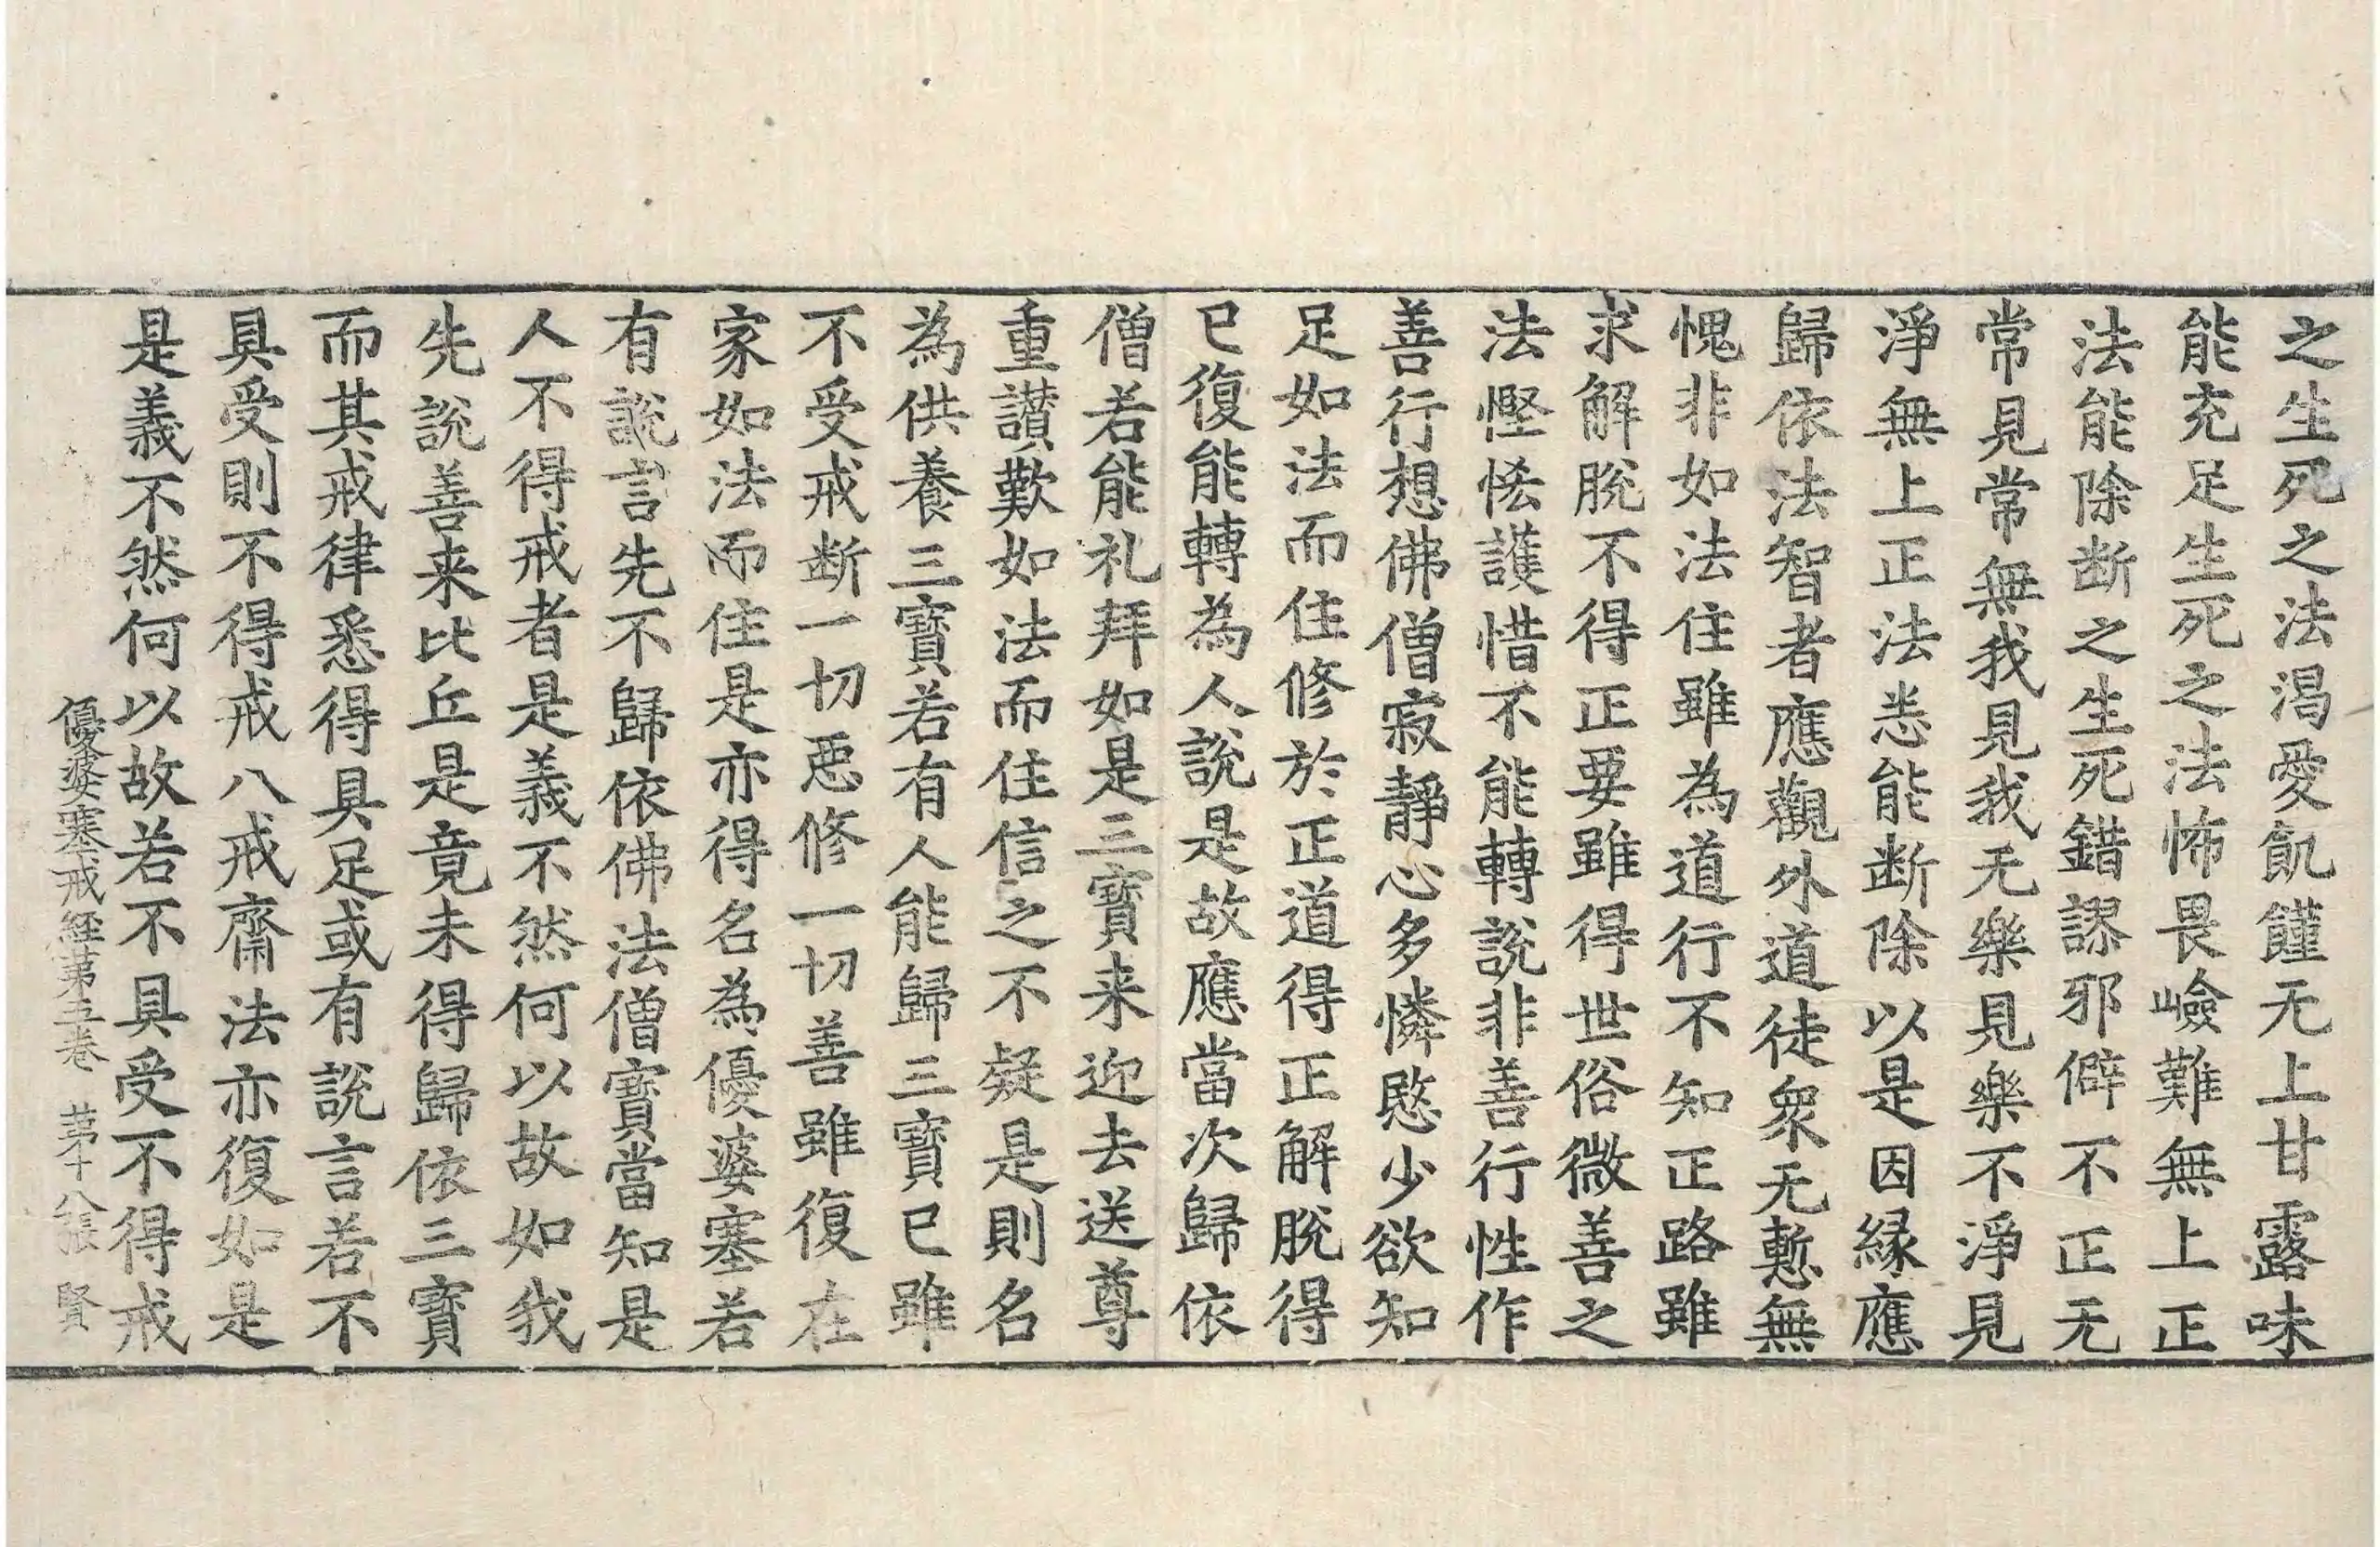 之生死之法渴愛飢饉无上甘露味
能充足生死之法怖畏嶮難無上正
法能除断之生死錯謬邪僻不正无
常見常無我見我无樂見樂不淨見
淨無上正法悉能断除以是因縁應
歸依法智者應觀外道徒衆无慙無
愧非如法住雖為道行不知正路雖
求解脫不得正要雖得世俗微善之
法慳悋護惜不能轉說非善行性作
善行想佛僧寂靜心多憐愍少欲知
足如法而住修於正道得正解脫得
已復能轉為人說是故應當次歸依
僧若能礼拜如是三寶来迎去送尊
重讃歎如法而住信之不疑是則名
為供養三寶若有人能歸三寶已雖
不受戒断一切惡修一切善雖復在
家如法而住是亦得名為優婆塞若
有說言先不歸依佛法僧寶當知是
人不得戒者是義不然何以故如我
先說善来比丘是竟未得歸依三寶
而其戒律悉得具足或有說言若不
具受則不得戒八戒齋法亦復如是
是義不然何以故若不具受不得戒
優婆塞戒経苐五卷　苐十八張　賢